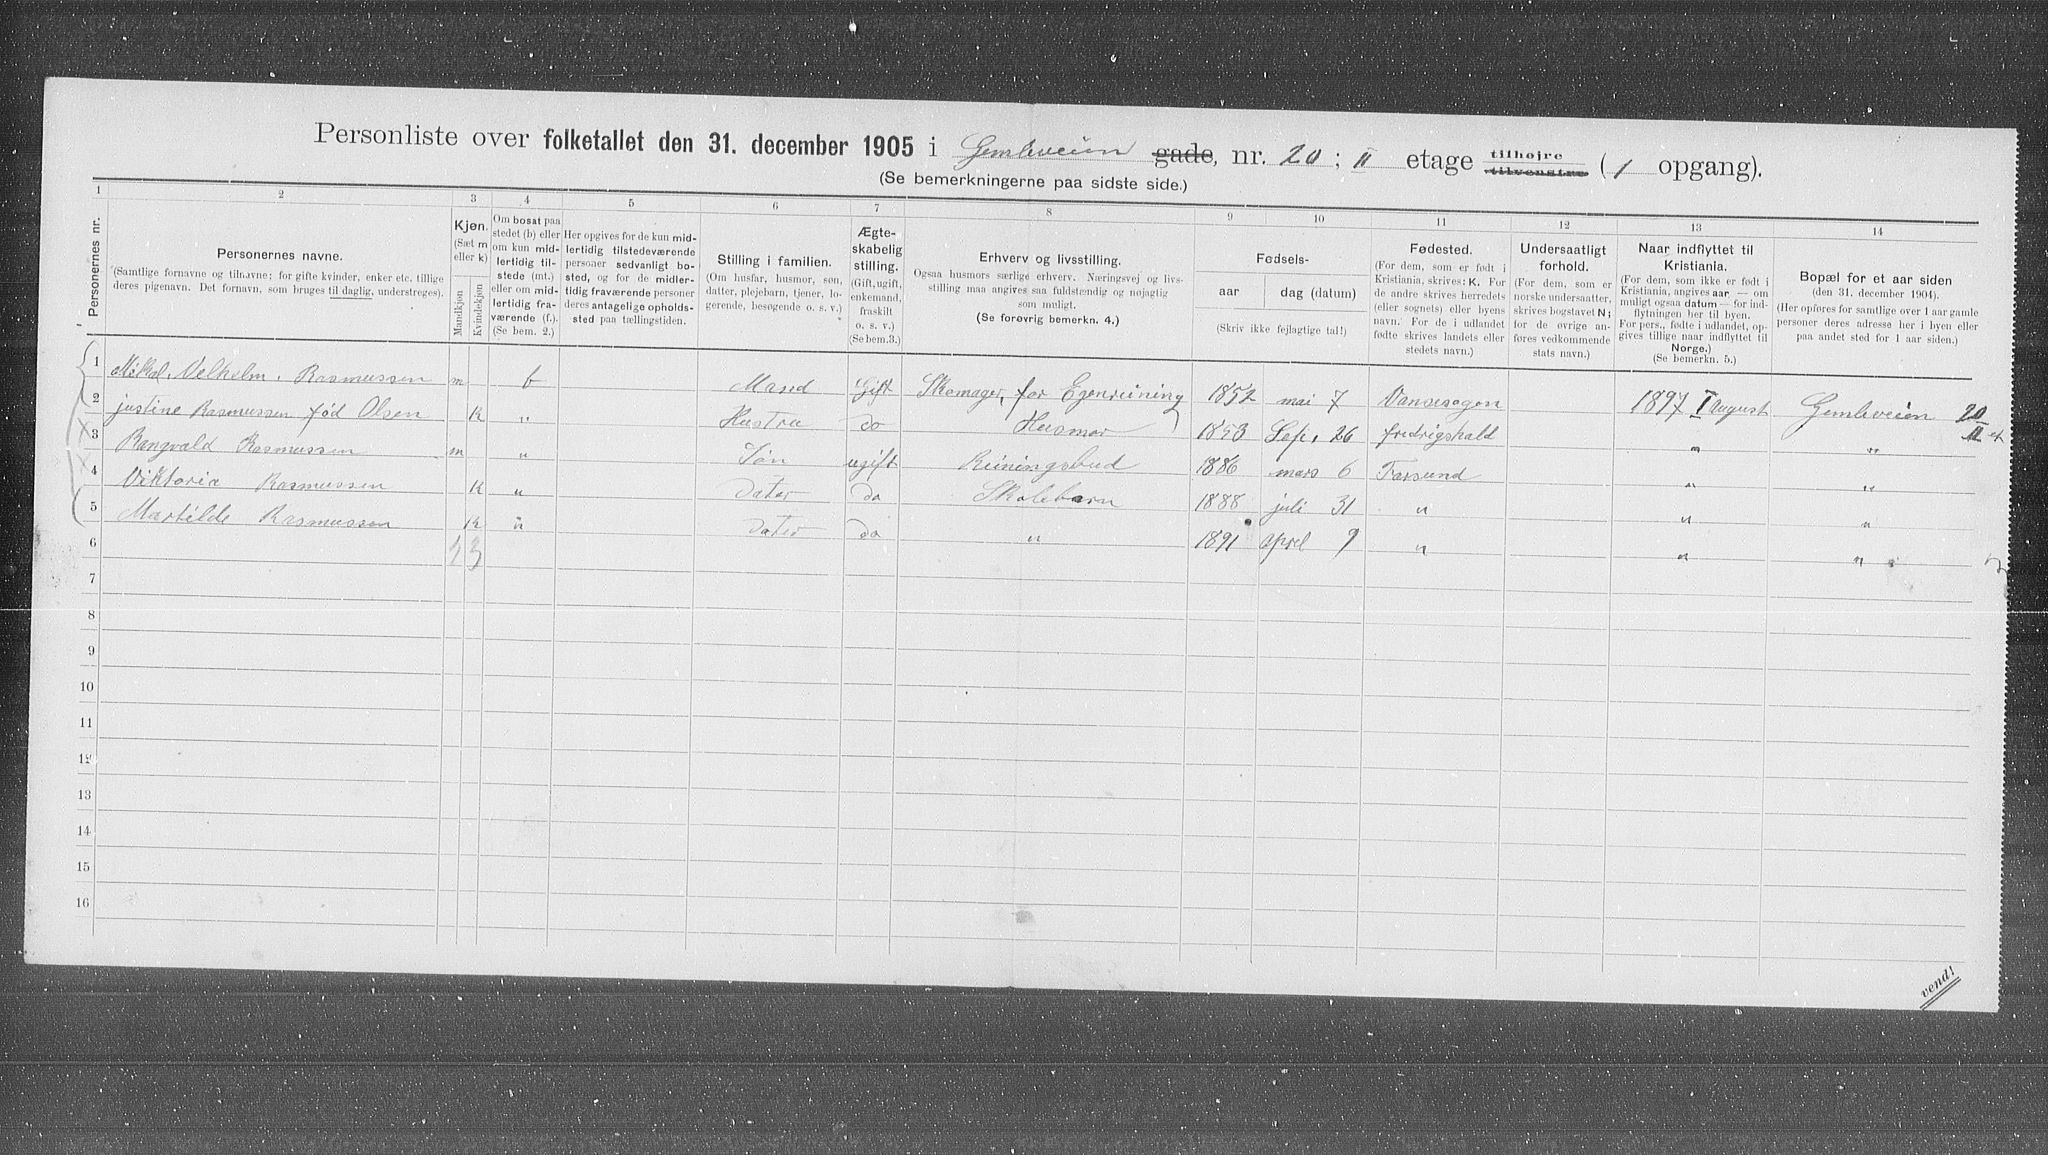 Personliste over folketallet den 31. december 1905 i Gemleveien gade, nr. 20 ; II etage tilhøjre tilvenstre (1 opgang).
(Se bemerkningerne paa sidste side.)
1 2 3 4 5 6 7 8 9 10 11 12 13 14
Personernes nr.
Personernes navne.
(Samtlige fornavne og tilnavne; for gifte kvinder, enker etc. tillige deres pigenavn. Det fornavn, som bruges til daglig, understreges).
Kjøn.
(Sæt m eller k)
Mandkjøn
Kvindekjøn
Om bosat paa stedet (b) eller om kun midlertidig tilstede (mt.) eller om midlertidig fraværende (f.). (Se bem. 2.)
Her opgives for de kun midlertidig tilstedeværende personer sedvanligt bosted, og for de midlertidig fraværende personer deres antagelige opholdssted paa tællingstiden.
Stilling i familien.
(Om husfar, husmor, søn, datter, plejebarn, tjener, logerende, besøgende o. s. v.)
Ægteskabelig stilling.
(Gift, ugift, enkemand, fraskilt o. s. v.)
(Se bem. 3.)
Erhverv og livsstilling.
Ogsaa husmors særlige erhverv. Næringsvej og livsstilling maa angives saa fuldstændig og nøjagtig som muligt.
(Se forøvrig bemerkn. 4.)
Fødsels-
aar
dag (datum)
(Skriv ikke fejlagtige tal!)
Fødested.
(For dem, som er født i Kristiania, skrives: K. For de andre skrives herredets (eller sognets) eller byens navn. For de i udlandet fødte skrives landets eller stedets navn.)
Undersaatligt forhold.
(For dem, som er norske undersaatter, skrives bogstavet N; for de øvrige angives vedkommende stats navn.)
Naar indflyttet til Kristiania.
(For dem, som ikke er født i Kristiania, angives aar — om muligt ogsaa datum — for indflytningen her til byen. For pers., fødte i udlandet, opgives tillige naar indflyttet til Norge.)
(Se bemerkn. 5.)
Bopæl for et aar siden
(den 31. december 1904).
(Her opføres for samtlige over 1 aar gamle personer deres adresse her i byen eller paa andet sted for 1 aar siden.)
1 Mikal. Velhelm. Rasmussen m b Mand Gift Skomager, for Egenreining 1852 mai 7 Vansesogen 1897 I August Gemleveien 20 II et
2 justine Rasmussen fød Olsen K " Hustru do Husmor 1853 Sep. 26 fredrigshald " "
3 Rangvald Rasmussen m " Søn ugift Reiningsbud 1886 mars 6 Farsund " "
4 Viktoria Rasmussen K " Dater do Skolebarn 1888 juli 31 " " "
5 Martilde Rasmussen K " Dater do " 1891 aprel 9 " " "
6
7
8
9
10
11
12
13
14
15
16
vend!